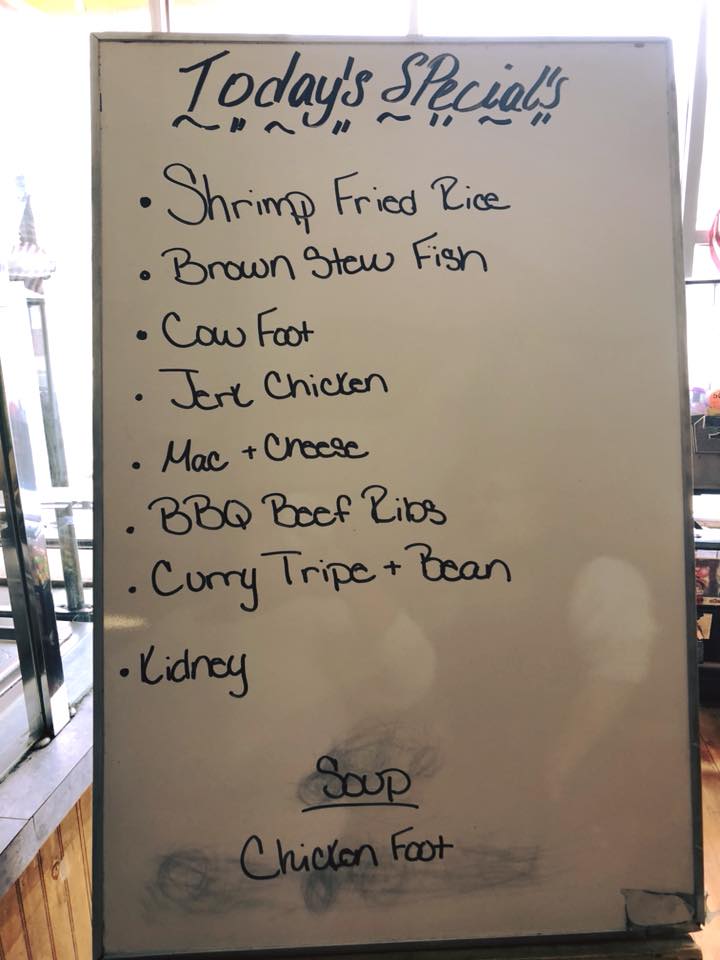 Today's Special's
• Shrimp Fried Rice
• Brown Stew Fish
• Cow Foot
• Jerk Chicken
• Mac + Cheese
• BBQ Beef Ribs
• Curry Tripe + Bean
• Kidney
Soup
Chicken Foot